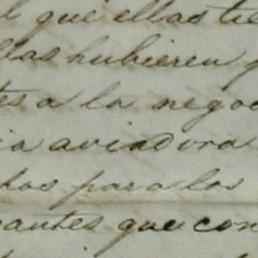 l que ellas tie
llas hubieren p
tes a la negoc
ia aviadora
chos para los
cantes que con